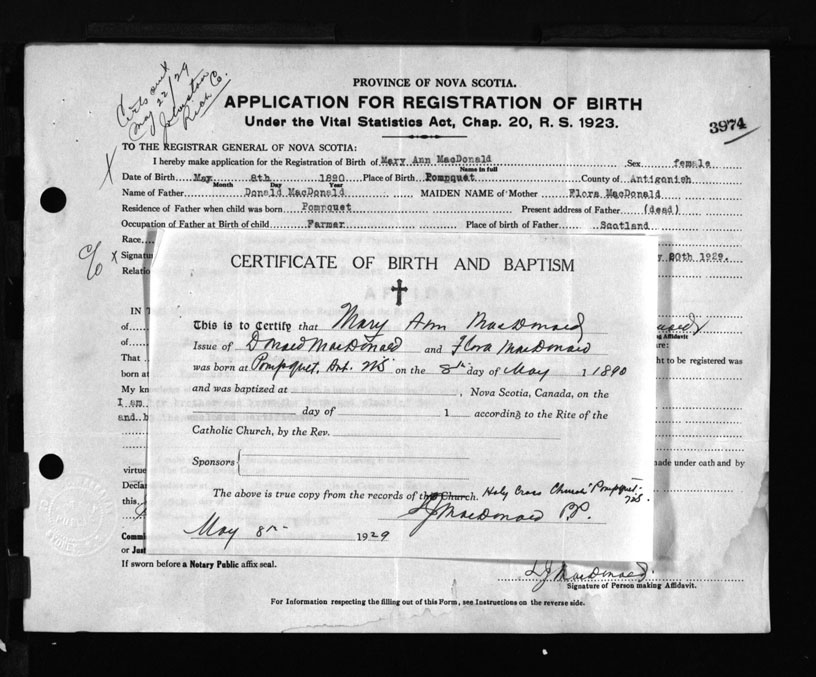 Certs sent
May 22/29
Johnston
Rich Co.
PROVINCE OF NOVA SCOTIA.
APPLICATION FOR REGISTRATION OF BIRTH
Under the Vital Statistics Act, Chap. 20, R. S. 1923.
3974
TO THE REGISTRAR GENERAL OF NOVA SCOTIA:
X
I hereby make application for the Registration of Birth of Mary Ann MacDonald Sex female
Name in full
Date of Birth May 8th 1890 Place of Birth Pompquet County of Antigonish
Month Day Year
Name of Father Donald MacDonald MAIDEN NAME of Mother Flora MacDonald
Residence of Father when child was born Pompquet Present address of Father (dead)
Occupation of Father at Birth of child Farmer Place of birth of Father Scotland
Race
c/o X Signatu 20th 1929.
Relatio
CERTIFICATE OF BIRTH AND BAPTISM
IN
of
This is to Certify that Mary Ann MacDonald
ing Affidavit
of
Issue of Donald MacDonald and Flora MacDonald
re:
That
ht to be registered was
born at
was born at Pompquet, Ant. NS on the 8th day of May 1 1890
My kn
and was baptized at , Nova Scotia, Canada, on the
I am
and b
day of 1 according to the Rite of the
Catholic Church, by the Rev.
Sponsors
virtue
made under oath and by
Declar
The above is true copy from the records of the Church. Holy Cross Church Pompquet NS.
this
LJ MacDonald P.P.
May 8th 1929
Commi
or Just
If sworn before a Notary Public affix seal.
LJ MacDonald.
Signature of Person making Affidavit.
For Information respecting the filling out of this Form, see Instructions on the reverse side.